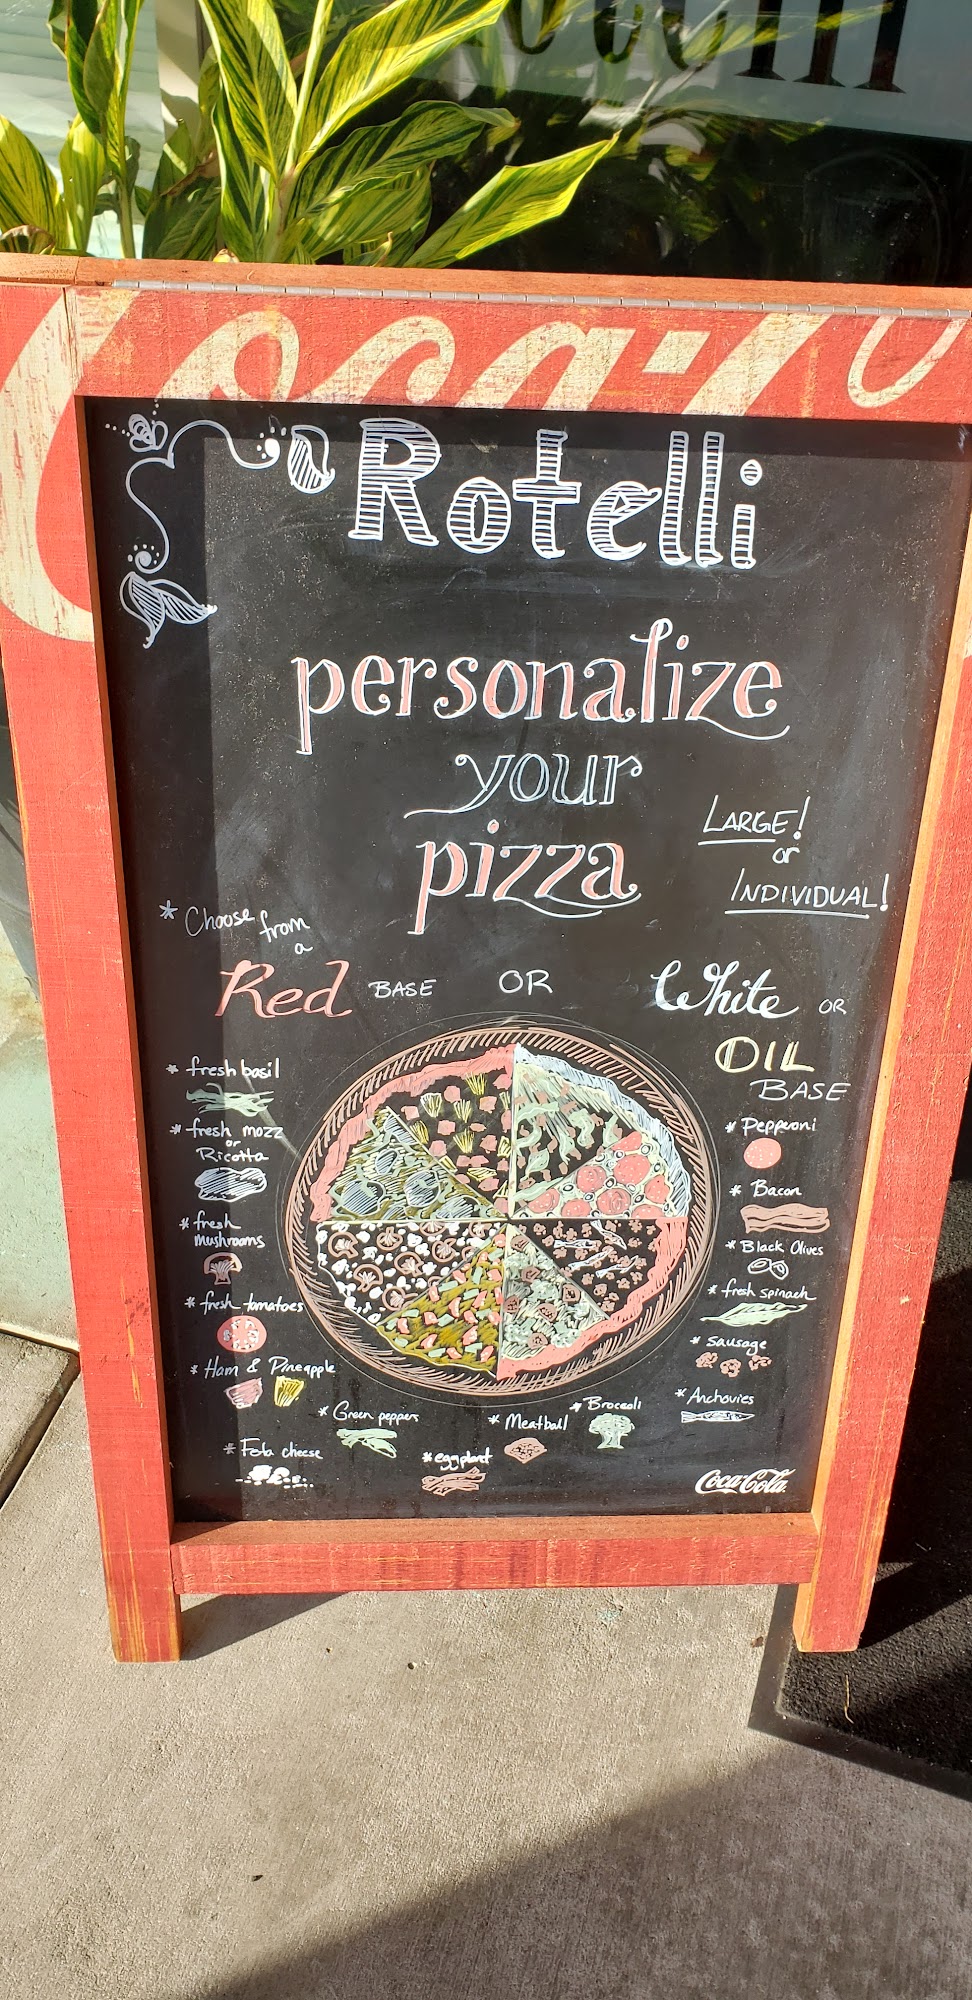 Coca-Co
Rotelli
personalize
your
pizza
LARGE!
or
INDIVIDUAL!
* Choose from
a
Red BASE OR White OR
OIL
BASE
* fresh basil
* fresh mozz
or
Ricotta
* fresh
mushrooms
* fresh tomatoes
* Ham & Pineapple
* Green peppers
* Feta cheese
* eggplant
* Meatball
* Broccoli
* Pepperoni
* Bacon
* Black Olives
* fresh spinach
* sausage
* Anchovies
Coca-Cola